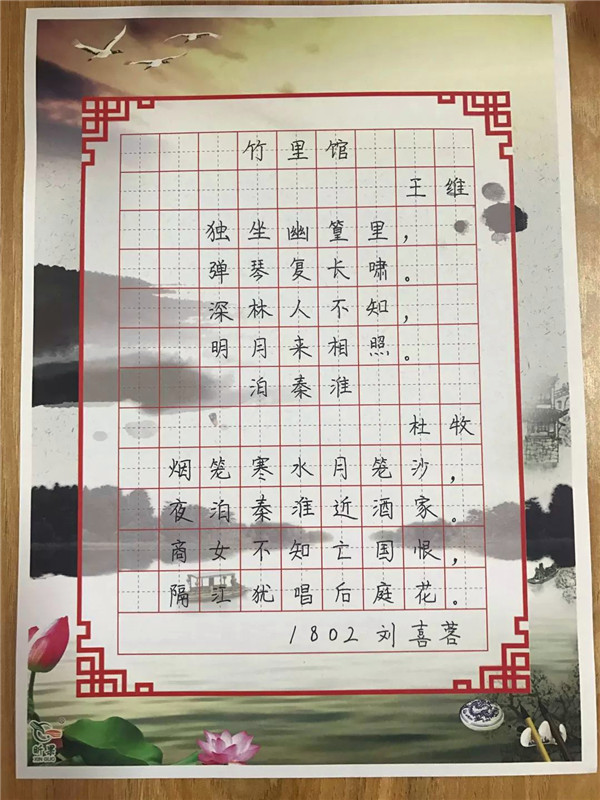 竹里馆
王维
独坐幽篁里，
弹琴复长啸。
深林人不知，
明月来相照。
泊秦淮
杜牧
烟笼寒水月笼沙，
夜泊秦淮近酒家。
商女不知亡国恨，
隔江犹唱后庭花。
1802 刘喜莟
昕果
XIN GUO